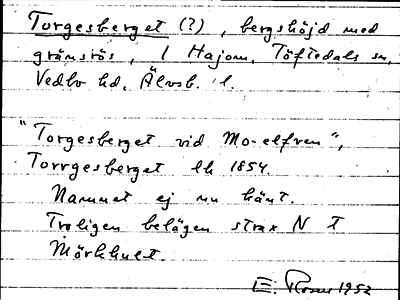 Torgesberget (?), bergshöjd med
gränsrös, I Hajom, Töftedals sn,
Vedbo hd, Älvsb. l.
"Torgesberget vid Mo-elfven",
Torrgesberget lk 1854.
Namnet ej nu känt.
Troligen belägen strax N I
Mörkhult.
E. Rosen 1952